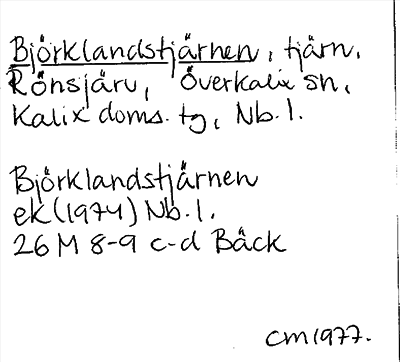 Björklandstjärnen, tjärn.
Rönsjärv, Överkalix sn,
Kalix doms. tg, Nb. l.
Björklandstjärnen
ek (1974) Nb. l.
26 M 8-9 c-d Bäck
CM 1977.